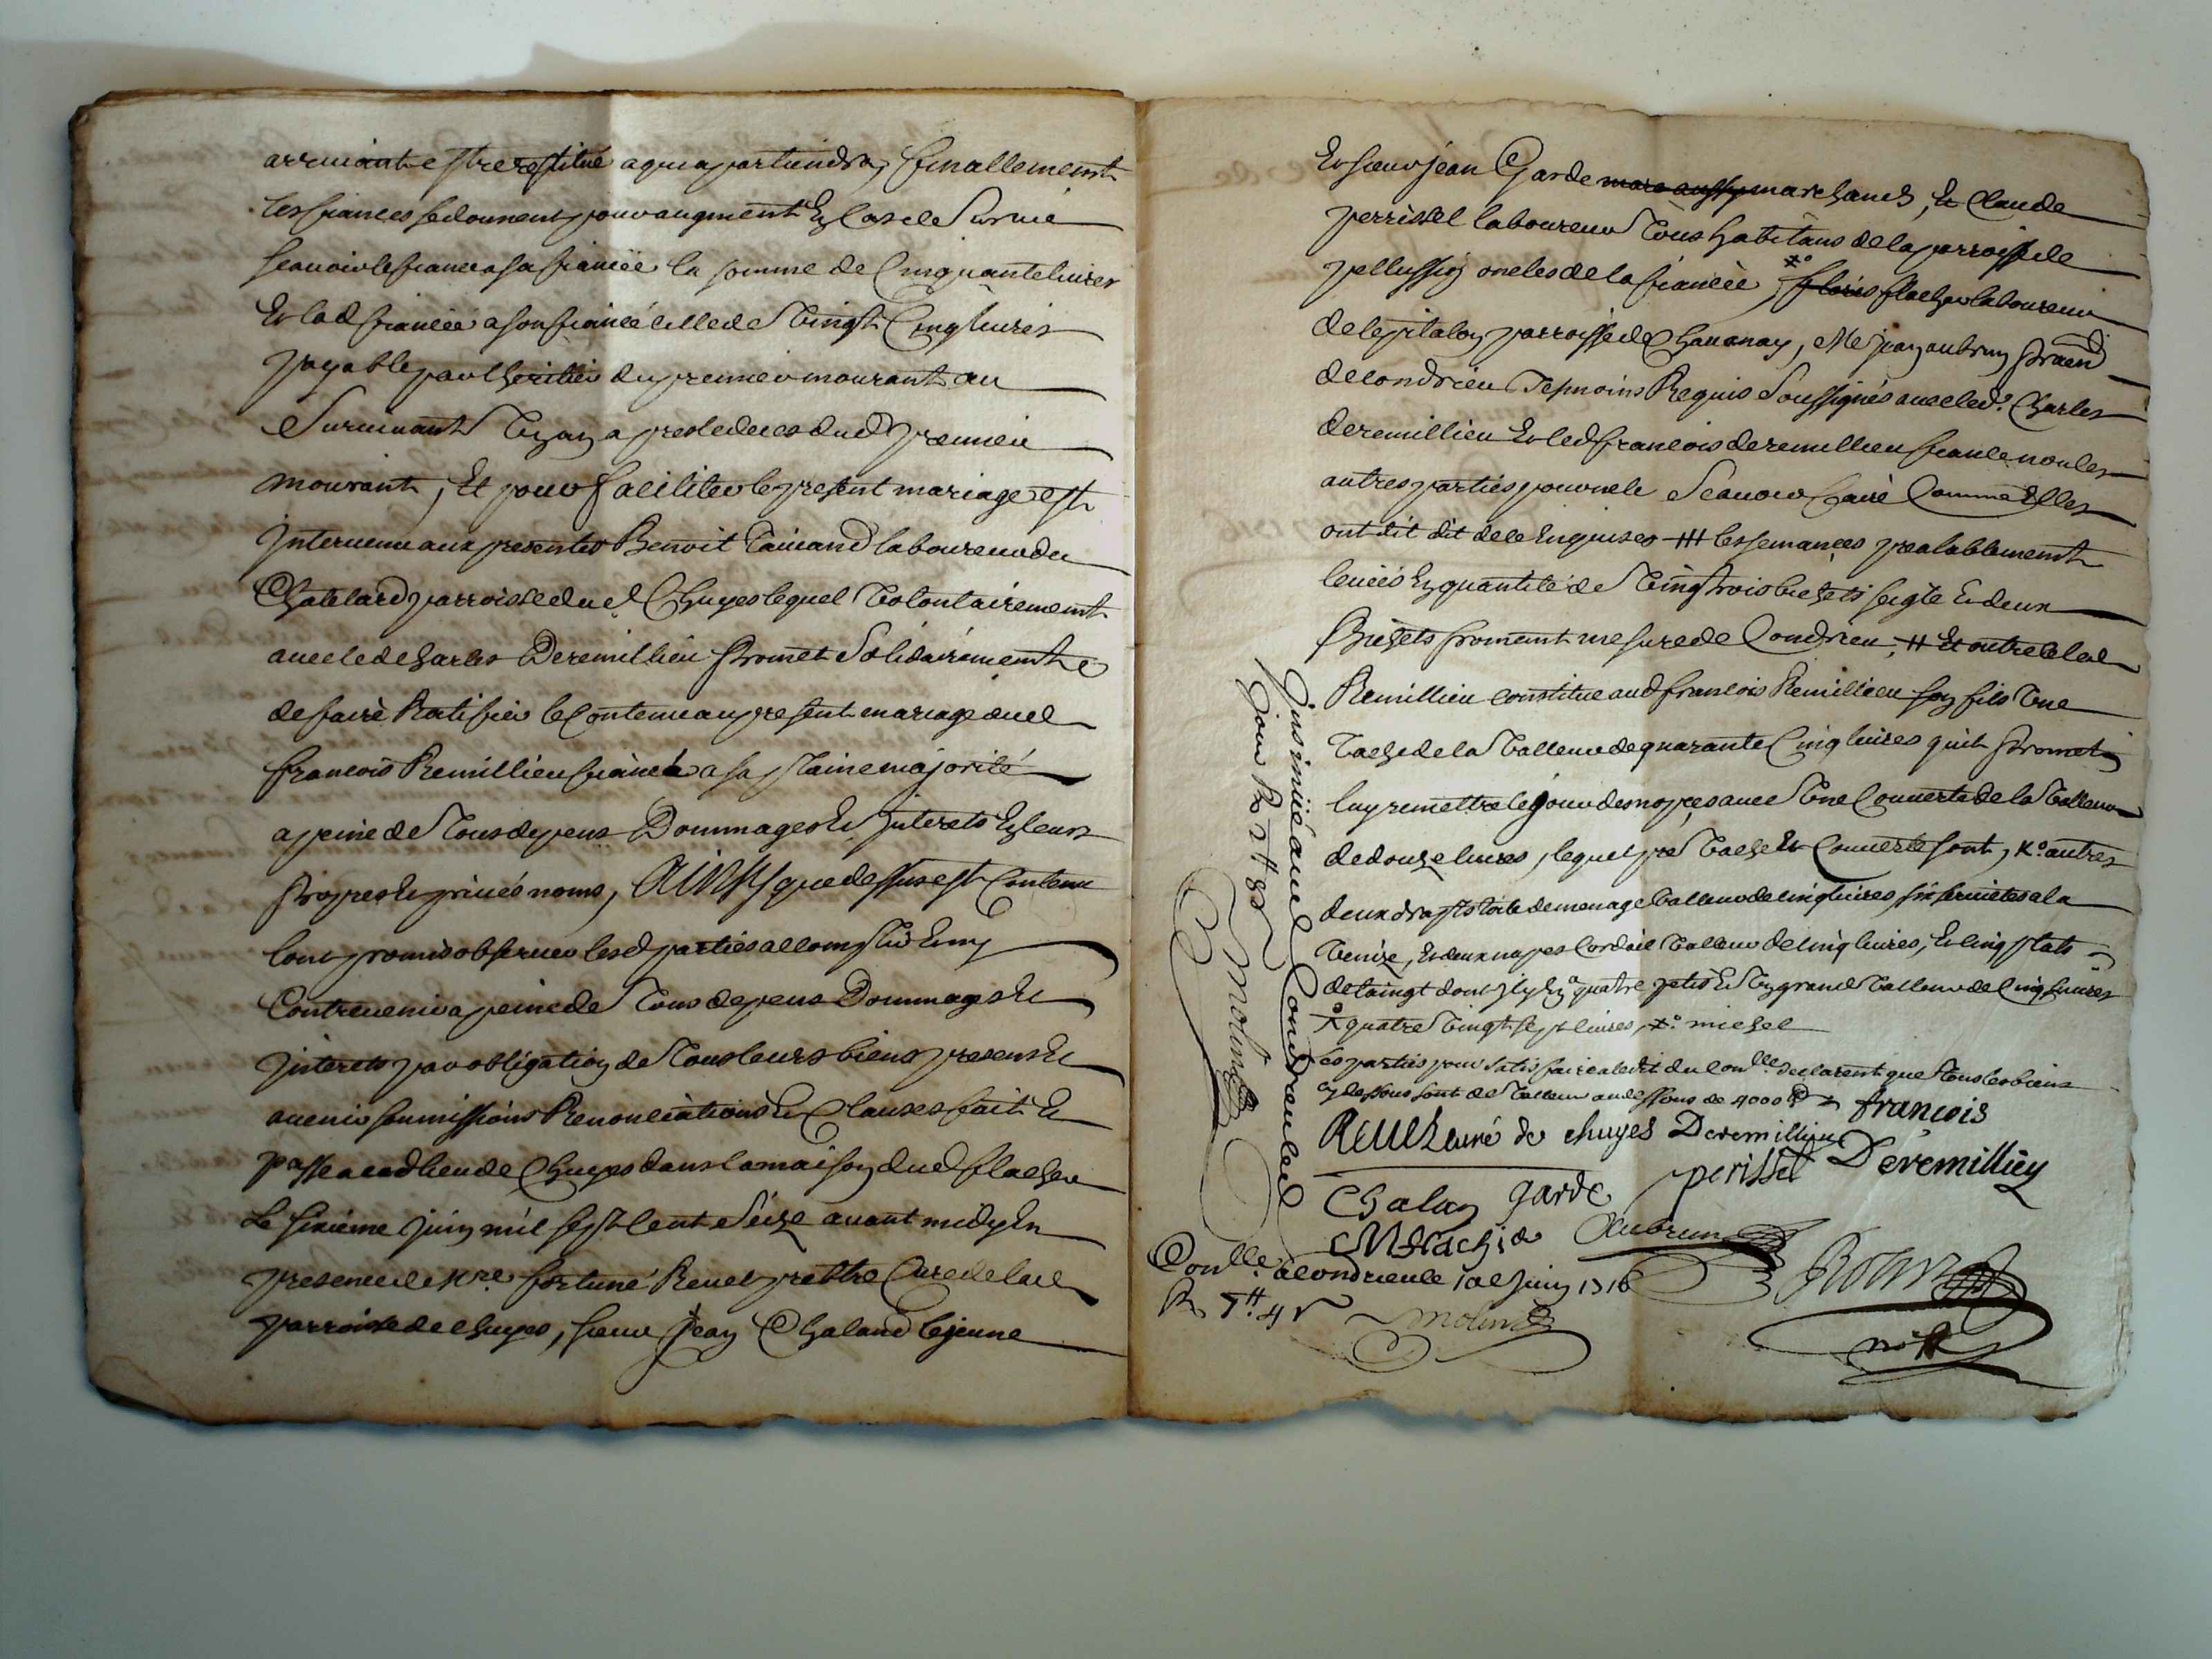 arrivant estre restitué a qui apartiendra, finallement
les fiances se donnent pour augment En cas de Survie
scavoir le fiance a sa fiancée la somme de Cinquante livres
Et lad fiancée a son fiancé celle de Vingt Cinq livres
payable par lheritier du premier mourant au
Survivant Un an apres le deces dud premier
mourant, Et pour faciliter le present mariage est
Intervenu aux presentes Benoit laboureur du
Chatelard parroisse dud Chuyes lequel Volontairement
avec led Charles Deremillieu promet Solidairement
de faire Ratifier le Contenu au present mariage aud
francois Remillieu fiancé a sa plaine majorité
a peine de Tous depens Dommages Et Interets En leurs
propres Et privés noms, AINSY que dessus est Contenu
lont promis observer lesd parties
Contrevenir a peine de Tous depens Dommages Et
Interets par obligation de Tous leurs biens presens Et
avenir soumissions Renonciations Et Clauses fait Et
passe aud lieu de Chuyes dans la maison dud flacher
Le sixième juin mil sept cent Seize avant midy En
presence de Mre fortuné Revel prettre Curé de lad
parroisse de chuyes, sieur Jean Chaland le jeune
Et sieur jean Garde marchand, Et Claude
perrissel laboureur Tous habitans de la parroisse de
pellussin oncles de la fiancée, flacher laboureur
de lepitalon parroisse de Chavanay, Me jean aubrun
de condrieu Temoins Requis Soussignés avec led. Charles
deremillieu Et led francois deremillieu fiance non les
autres parties pour ne le Scavoir faire Comme Elles
ont dit de ce Enquises # les semances prealablement
levées En quantité de Vingt trois bichets seigle Et deux
Bichets froment mesure de Condrieu, # Et outre ce led
Remillieu constitue aud francois Remillieu son fils Une
Vache de la Valleur de quarante Cinq livres quil promet
luy remettre le jour des nopces avec Une Couverte de la Valleur
de douze livres, lequel pre Vache Et Couverte sont, autres
deux draps toile de menage Valleur de cinq livres, six serviettes a la
Venize, Et deux napes Cordail Valleur de cinq livres, Et cinq plats
detaingt dont Il y En quatre petis Et Un grand Valleur de Cinq livres
quatre Vingt sept livres, michel
Les parties pour satisfaire a ledit du conlle declarent que Tous les biens
cy dessous sont de Valleur au dessous de 4000 francois
Revel curé de chuyes Deremillieu Deremillieu
Chalan garde perissel
M flachier Aubrun
Conlle a condrieu le 10e juin 1716
R 7tt 4s Molin
Insinué aud Condrieu led
jour R Molin